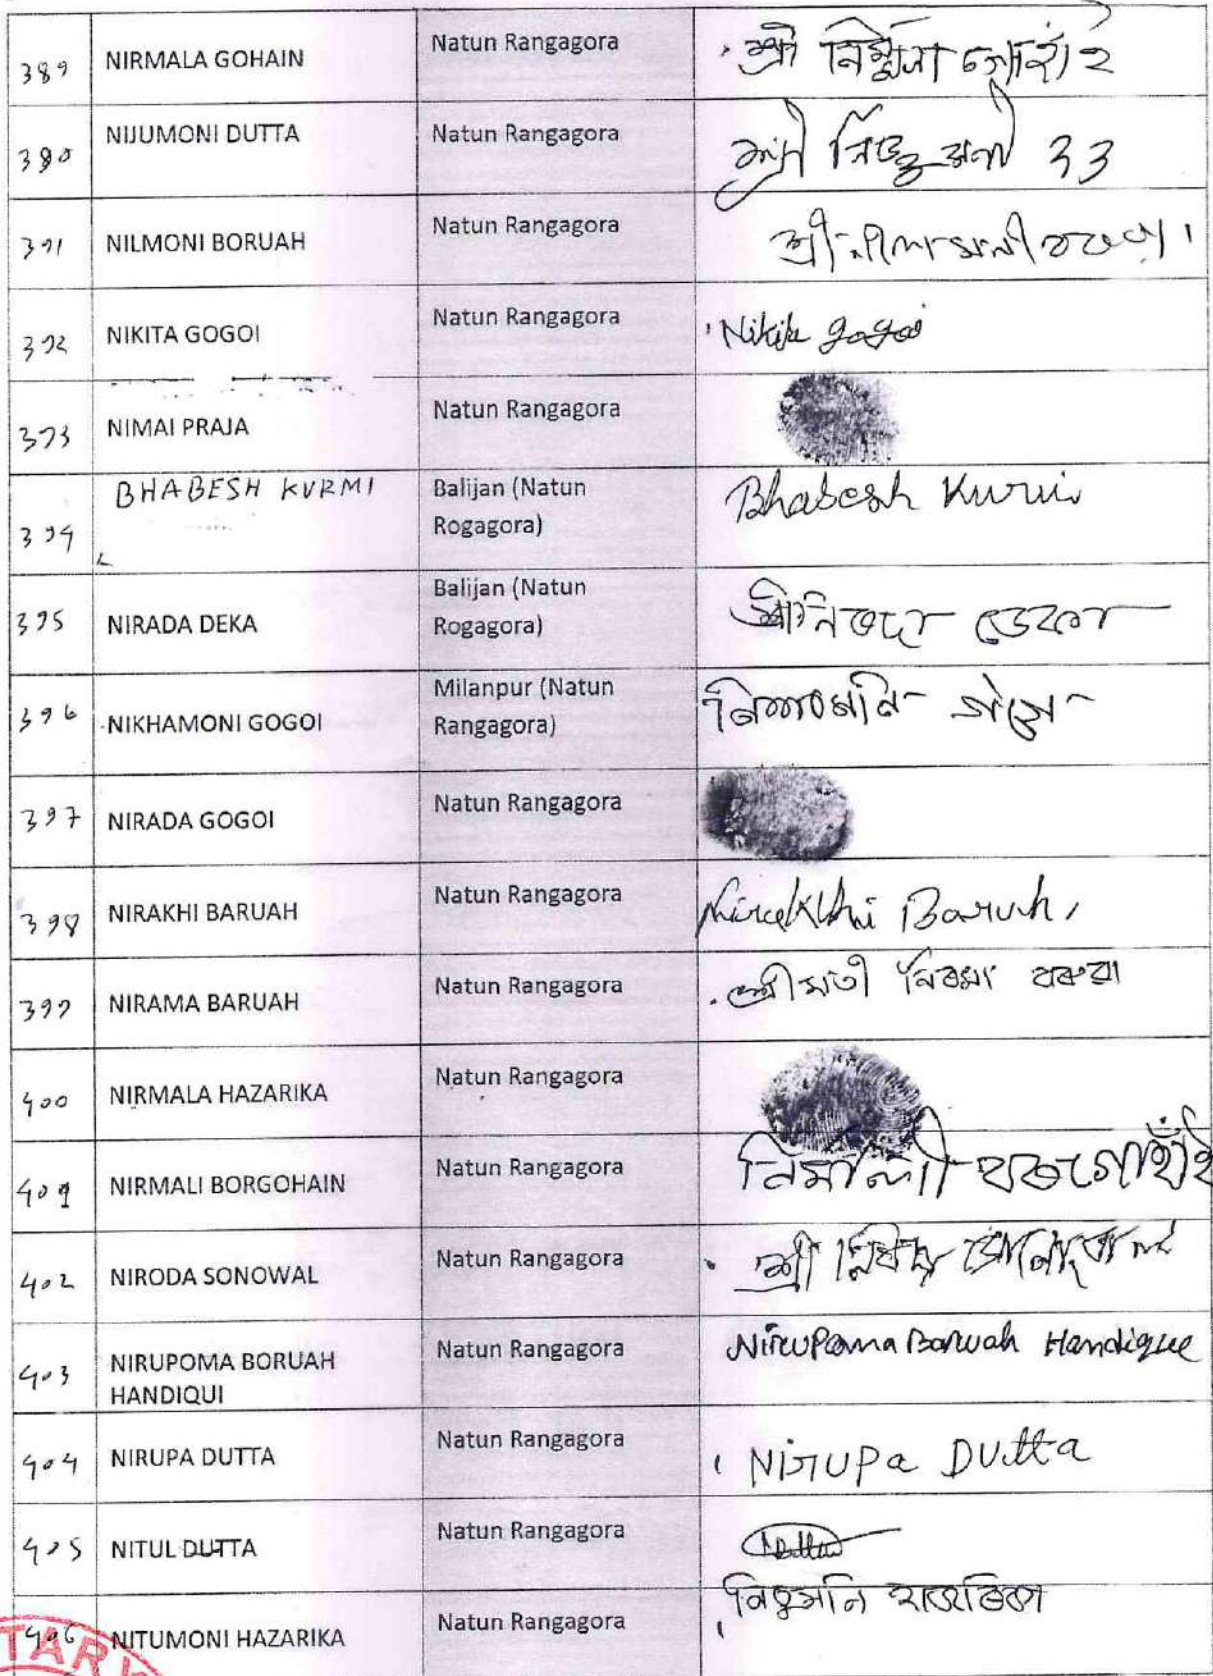 389 NIRMALA GOHAIN Natun Rangagora শ্রী নিৰ্মালা গোহাঁই
390 NIJUMONI DUTTA Natun Rangagora শ্রী নিজু মনী দত্ত
391 NILMONI BORUAH Natun Rangagora শ্রী নীলমনী বৰুৱা।
392 NIKITA GOGOI Natun Rangagora Nikita gogoi
393 NIMAI PRAJA Natun Rangagora
BHABESH KURMI Balijan (Natun Bhabesh Kurmi
394 Rogagora)
Balijan (Natun
395 NIRADA DEKA Rogagora) শ্রী নিৰদা ডেকা
Milanpur (Natun
396 NIKHAMONI GOGOI Rangagora) গগৈ
397 NIRADA GOGOI Natun Rangagora
398 NIRAKHI BARUAH Natun Rangagora Nirakhi Baruah
399 NIRAMA BARUAH Natun Rangagora শ্রীমতী নিৰমা বৰুৱা
400 NIRMALA HAZARIKA Natun Rangagora
401 NIRMALI BORGOHAIN Natun Rangagora নিৰ্মালী বৰগোহাঁই
402 NIRODA SONOWAL Natun Rangagora শ্রী নিৰদা সোনোৱাল
403 NIRUPOMA BORUAH Natun Rangagora Nirupama Baruah Handique
HANDIQUI
404 NIRUPA DUTTA Natun Rangagora Nirupa Dutta
405 NITUL DUTTA Natun Rangagora NDutta
406 NITUMONI HAZARIKA Natun Rangagora নিতুমনি হাজৰিকা
TARY